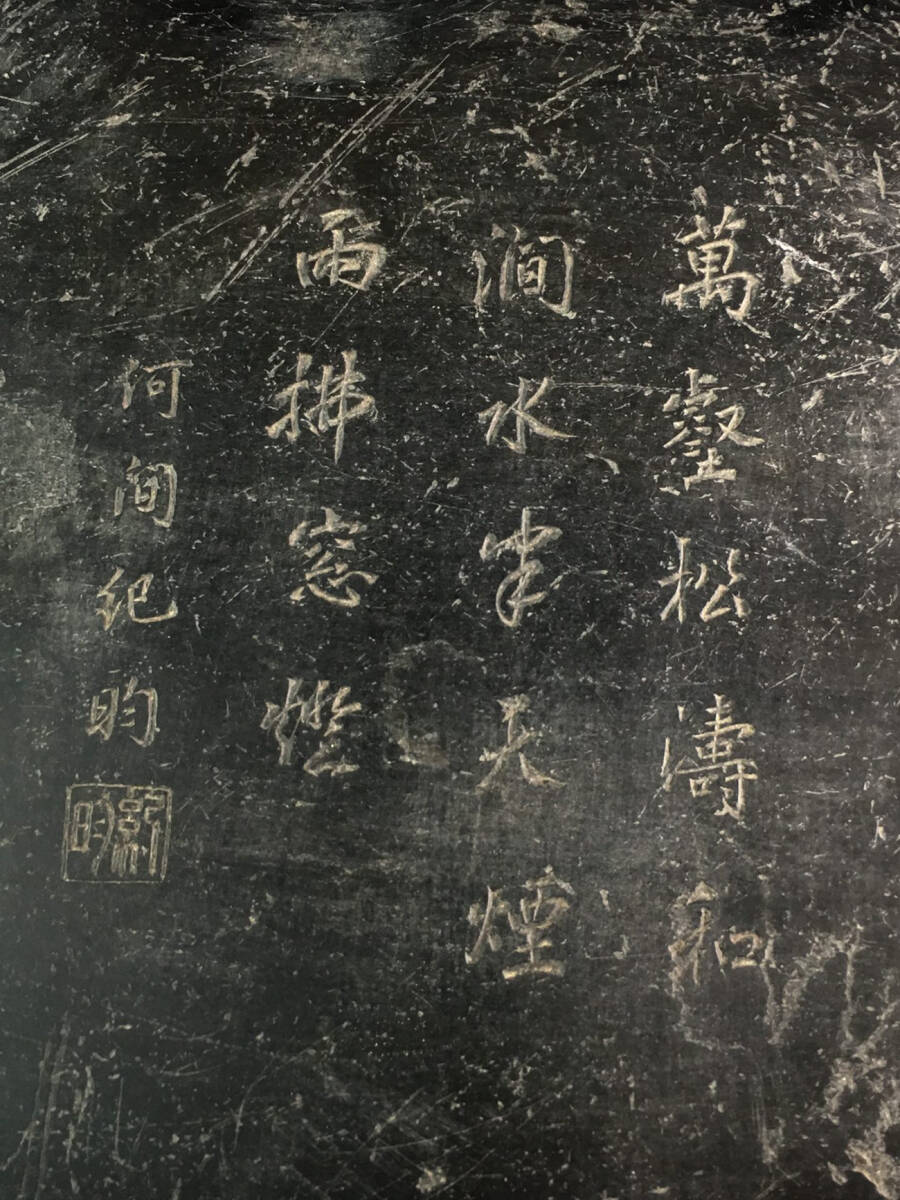 萬壑松濤和
澗水半天煙
雨拂窓燈
河間紀昀
紀昀